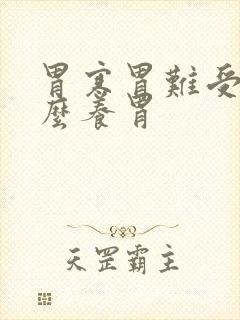 胃寒胃難受
麼養胃
天罡霸主